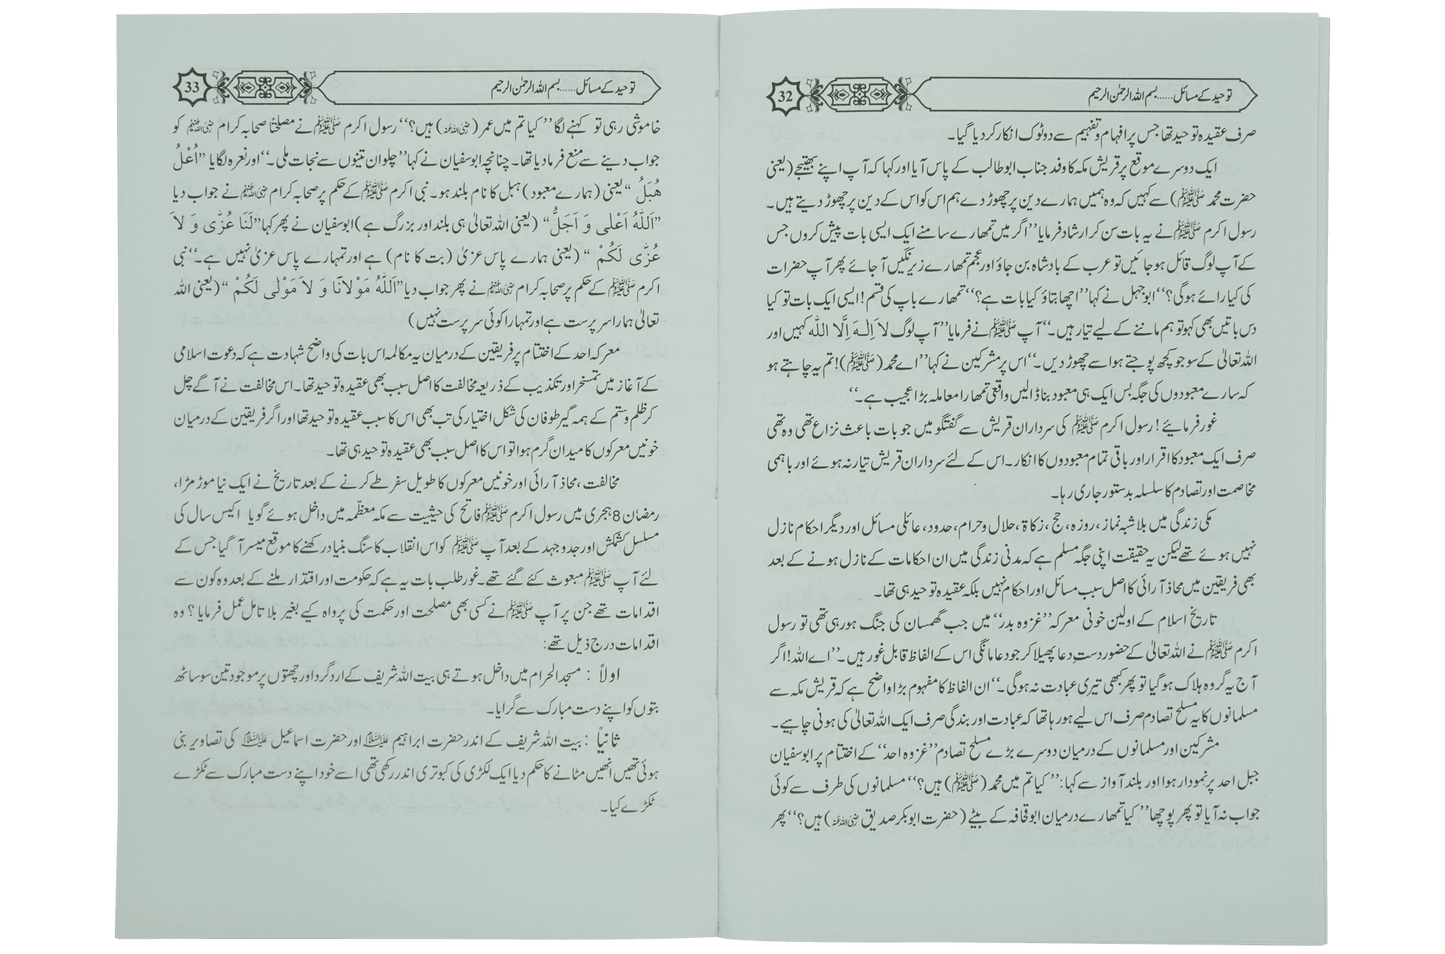 توحید کے مسائل......بسم اللہ الرحمٰن الرحیم
32
صرف عقیدہ توحید تھا جس پر افہام و تفہیم سے دو ٹوک انکار کر دیا گیا۔
ایک دوسرے موقع پر قریش مکہ کا وفد جناب ابوطالب کے پاس آیا اور کہا کہ آپ اپنے بھتیجے (یعنی
حضرت محمد ﷺ) سے کہیں کہ وہ ہمیں ہمارے دین پر چھوڑ دے ہم اس کو اس کے دین پر چھوڑ دیتے ہیں۔
رسول اکرم ﷺ نے یہ بات سن کر ارشاد فرمایا ’’اگر میں تمھارے سامنے ایک ایسی بات پیش کروں جس
کے آپ لوگ قائل ہو جائیں تو عرب کے بادشاہ بن جاؤ اور عجم تمھارے زیر نگیں آ جائے پھر آپ حضرات
کی کیا رائے ہوگی؟‘‘ ابوجہل نے کہا ’’اچھا بتاؤ کیا بات ہے؟‘‘ تمھارے باپ کی قسم! ایسی ایک بات تو کیا
دس باتیں بھی کہو تو ہم ماننے کے لیے تیار ہیں۔‘‘ آپ ﷺ نے فرمایا ’’آپ لوگ لاَ اِلٰہَ اِلَّا اللّٰہ کہیں اور
اللہ تعالیٰ کے سوا جو کچھ پوجتے ہو اسے چھوڑ دیں۔‘‘ اس پر مشرکین نے کہا ’’اے محمد (ﷺ)! تم یہ چاہتے ہو
کہ سارے معبودوں کی جگہ بس ایک ہی معبود بنا ڈالیں واقعی تمھارا معاملہ بڑا عجیب ہے۔‘‘
غور فرمایئے! رسول اکرم ﷺ کی سرداران قریش سے گفتگو میں جو بات باعث نزاع تھی وہ تھی
صرف ایک معبود کا اقرار اور باقی تمام معبودوں کا انکار۔ اس کے لئے سرداران قریش تیار نہ ہوئے اور باہمی
مخاصمت اور تصادم کا سلسلہ بدستور جاری رہا۔
مکی زندگی میں بلاشبہ نماز، روزہ، حج، زکاۃ، حلال و حرام، حدود، عائلی مسائل اور دیگر احکام نازل
نہیں ہوئے تھے لیکن یہ حقیقت اپنی جگہ مسلم ہے کہ مدنی زندگی میں ان احکامات کے نازل ہونے کے بعد
بھی فریقین میں محاذ آرائی کا اصل سبب مسائل اور احکام نہیں بلکہ عقیدہ توحید ہی تھا۔
تاریخ اسلام کے اولین خونی معرکہ ’’غزوہ بدر‘‘ میں جب گھمسان کی جنگ ہو رہی تھی تو رسول
اکرم ﷺ نے اللہ تعالیٰ کے حضور دستِ دعا پھیلا کر جو دعا مانگی اس کے الفاظ قابل غور ہیں۔ ’’اے اللہ! اگر
آج یہ گروہ ہلاک ہو گیا تو پھر کبھی تیری عبادت نہ ہوگی۔‘‘ ان الفاظ کا مفہوم بڑا واضح ہے کہ قریش مکہ سے
مسلمانوں کا یہ مسلح تصادم صرف اس لیے ہو رہا تھا کہ عبادت اور بندگی صرف ایک اللہ تعالیٰ کی ہونی چاہیے۔
مشرکین اور مسلمانوں کے درمیان دوسرے بڑے مسلح تصادم ’’غزوہ احد‘‘ کے اختتام پر ابوسفیان
جبل احد پر نمودار ہوا اور بلند آواز سے کہا: ’’کیا تم میں محمد (ﷺ) ہیں؟‘‘ مسلمانوں کی طرف سے کوئی
جواب نہ آیا تو پھر پوچھا ’’کیا تمھارے درمیان ابوقحافہ کے بیٹے (حضرت ابوبکر صدیق رضی اللہ عنہ) ہیں؟‘‘ پھر
توحید کے مسائل......بسم اللہ الرحمٰن الرحیم
33
خاموشی رہی تو کہنے لگا ’’کیا تم میں عمر (رضی اللہ عنہ) ہیں؟‘‘ رسول اکرم ﷺ نے مصلحتاً صحابہ کرام رضی اللہ عنہم کو
جواب دینے سے منع فرما دیا تھا۔ چنانچہ ابوسفیان نے کہا ’’چلو ان تینوں سے نجات ملی۔‘‘ اور نعرہ لگایا ’’اُعْلُ
ھُبَلُ‘‘ یعنی (ہمارے معبود) ہبل کا نام بلند ہو۔ نبی اکرم ﷺ کے حکم پر صحابہ کرام رضی اللہ عنہم نے جواب دیا
’’اَللّٰہُ اَعْلٰی وَ اَجَلُّ‘‘ (یعنی اللہ تعالیٰ ہی بلند اور بزرگ ہے) ابوسفیان نے پھر کہا ’’لَنَا عُزّٰی وَ لاَ
عُزّٰی لَکُمْ‘‘ (یعنی ہمارے پاس عزیٰ (بت کا نام) ہے اور تمہارے پاس عزیٰ نہیں ہے۔‘‘ نبی
اکرم ﷺ کے حکم پر صحابہ کرام رضی اللہ عنہم نے پھر جواب دیا ’’اَللّٰہُ مَوْلاَنَا وَ لاَ مَوْلٰی لَکُمْ‘‘ (یعنی اللہ
تعالیٰ ہمارا سرپرست ہے اور تمہارا کوئی سرپرست نہیں)
معرکہ احد کے اختتام پر فریقین کے درمیان یہ مکالمہ اس بات کی واضح شہادت ہے کہ دعوت اسلامی
کے آغاز میں تمسخر اور تکذیب کے ذریعہ مخالفت کا اصل سبب بھی عقیدہ توحید تھا۔ اس مخالفت نے آگے چل
کر ظلم و ستم کے ہمہ گیر طوفان کی شکل اختیار کی تب بھی اس کا سبب عقیدہ توحید تھا اور اگر فریقین کے درمیان
خونیں معرکوں کا میدان گرم ہوا تو اس کا اصل سبب بھی عقیدہ توحید ہی تھا۔
مخالفت، محاذ آرائی اور خونیں معرکوں کا طویل سفر طے کرنے کے بعد تاریخ نے ایک نیا موڑ مڑا،
رمضان 8 ہجری میں رسول اکرم ﷺ فاتح کی حیثیت سے مکہ معظّمہ میں داخل ہوئے گویا اکیس سال کی
مسلسل کشمکش اور جدوجہد کے بعد آپ ﷺ کو اس انقلاب کا سنگ بنیاد رکھنے کا موقع میسر آ گیا جس کے
لئے آپ ﷺ مبعوث کئے گئے تھے۔ غور طلب بات یہ ہے کہ حکومت اور اقتدار ملنے کے بعد وہ کون سے
اقدامات تھے جن پر آپ ﷺ نے کسی بھی مصلحت اور حکمت کی پرواہ کیے بغیر بلا تامل عمل فرمایا؟ وہ
اقدامات درج ذیل تھے:
اولاً : مسجد الحرام میں داخل ہوتے ہی بیت اللہ شریف کے ارد گرد اور چھتوں پر موجود تین سو ساٹھ
بتوں کو اپنے دست مبارک سے گرایا۔
ثانیاً : بیت اللہ شریف کے اندر حضرت ابراہیم علیہ السلام اور حضرت اسماعیل علیہ السلام کی تصاویر بنی
ہوئی تھیں انھیں مٹانے کا حکم دیا ایک لکڑی کی کبوتری اندر رکھی تھی اسے خود اپنے دست مبارک سے ٹکڑے
ٹکڑے کیا۔